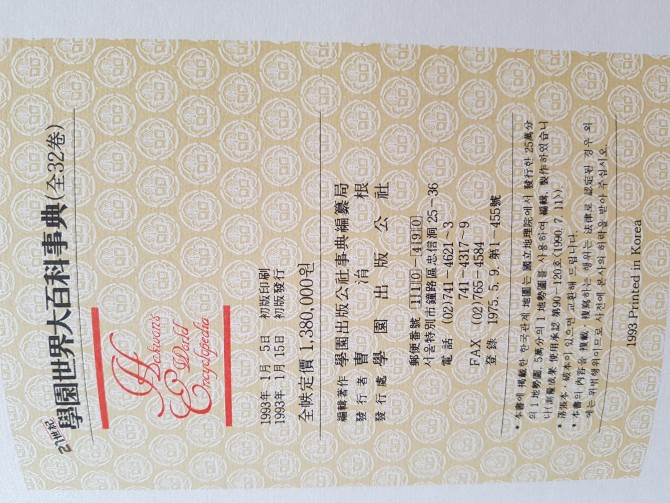 21世紀
學園世界大百科事典(全32卷)
Hakwon's
World
Encyclopedia
1993年 1月 5日 初版印刷
1993年 1月 15日 初版發行
全帙定價 1,380,000원
編輯著作 學園出版公社事典編纂局
發行者 曺 洧 根
發行處 學園出版公社
郵便番號 110-490
서울特別市鍾路區忠信洞 25-36
電話 (02)741-4621~3
741-4317~9
FAX (02)765-4584
登錄 1975. 5. 9. 第1-455號
* 本書에 揭載한 한국관계 地圖는 國立地理院에서 發行한 25萬分
의 1地勢圖, 5萬分의 1地勢圖를 사용하여 編輯, 製作하였습니
다(測量成果 使用承認 第90-120호(1990. 7. 11)).
* 落張本·破本이 있으면 교환해 드립니다.
* 本書의 內容을 複載·複寫하는 행위는 法律로 認定된 경우 외
에는 위법행위이므로 사전에 본사의 허락을 받아 주십시오.
1993 Printed in Korea